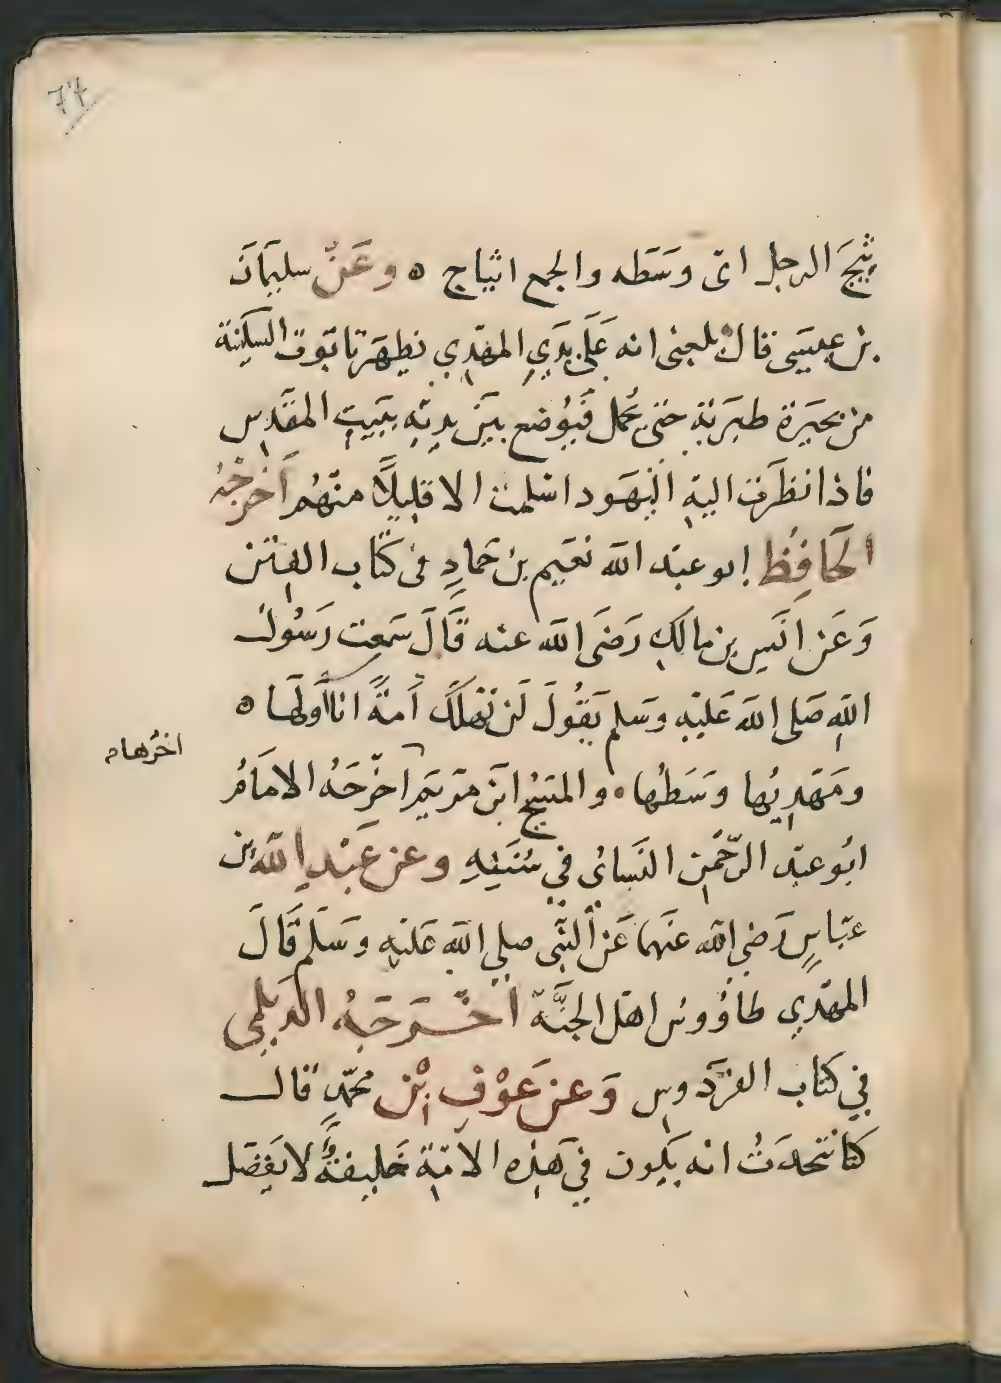 77
ثَبَجَ الرجل اىّ وسَطه والجمع اثباج ه وعَنْ سليمَانَ
بن عيسَى قال بلغنى انه عَلى يدَيِ المهدِي يظهر تابوت السكينة
من بحيَرة طبَرية حتى يحُمل فيُوضع بين يديْه ببَيت المقدِس
فاذا نظَرت اليهِ اليَهود اسْلمت الا قليلاً منهُم اَخرجَهُ
الحَافِظ ابو عبْد الله نعَيم بن حَمادٍ فى كتاب الفتن
وَعَن انَس بن مالك رَضَى الله عنه قَالَ سَمعت رَسُول
اللّهِ صَلى الله عَليْهِ وسَلم يَقُولَ لَن تهلَكَ اُمةً انا اَولهَا ه
ومَهْديُها وسَطُها ه والمسَيْح ابن مَريَم اخرّجَهُ الامَامُ
اخُرها م
ابُو عبْد الرّحمْن النسَائى في سُنَنِهِ وعن عَبْدِ اللّه بن
عبّاسٍ رَضي الله عنهَما عَن النّبى صلي الله عَليْهِ وسَلم قَالَ
المهدّي طاؤوس اهْل الجنَّة اخْرَجَهُ الدَيلمى
في كتاب الفرَدوس وَعن عَوْفِ ابْن محمّدٍ قالـــ
كنا نتحدَثُ انه يكون في هَذِه الامّة خَليفةٌ لا يَفضل